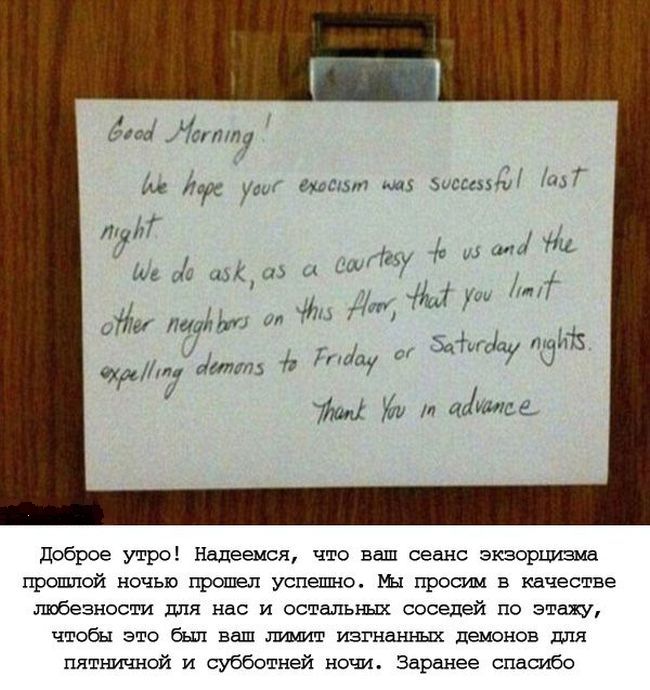 Good Morning!
We hope your exocism was successful last
night.
We do ask, as a courtesy to us and the
other neighbors on this floor, that you limit
expelling demons to Friday or Saturday nights.
Thank You in advance
Доброе утро! Надеемся, что ваш сеанс экзорцизма
прошлой ночью прошел успешно. Мы просим в качестве
любезности для нас и остальных соседей по этажу,
чтобы это был ваш лимит изгнанных демонов для
пятничной и субботней ночи. Заранее спасибо